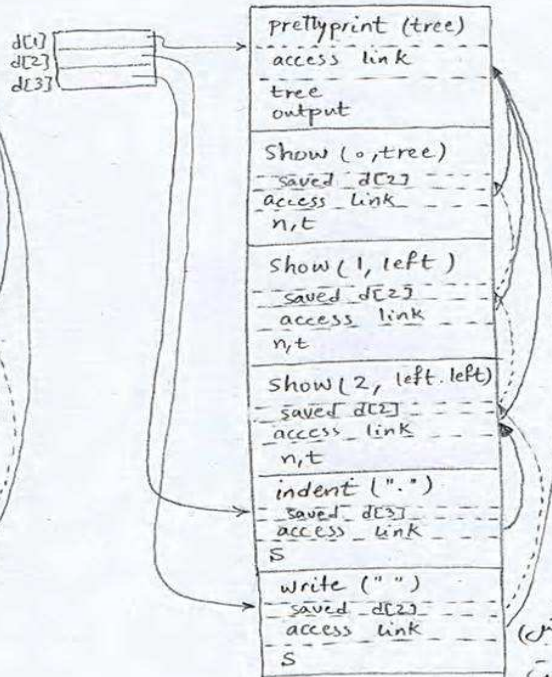 d[1]
d[2]
d[3]
prettyprint (tree)
access link
tree
output
show (0, tree)
saved d[2]
access link
n,t
show (1, left)
saved d[2]
access link
n,t
show (2, left.left)
saved d[2]
access link
n,t
indent (".")
saved d[3]
access link
S
write (" ")
saved d[2]
access link
S